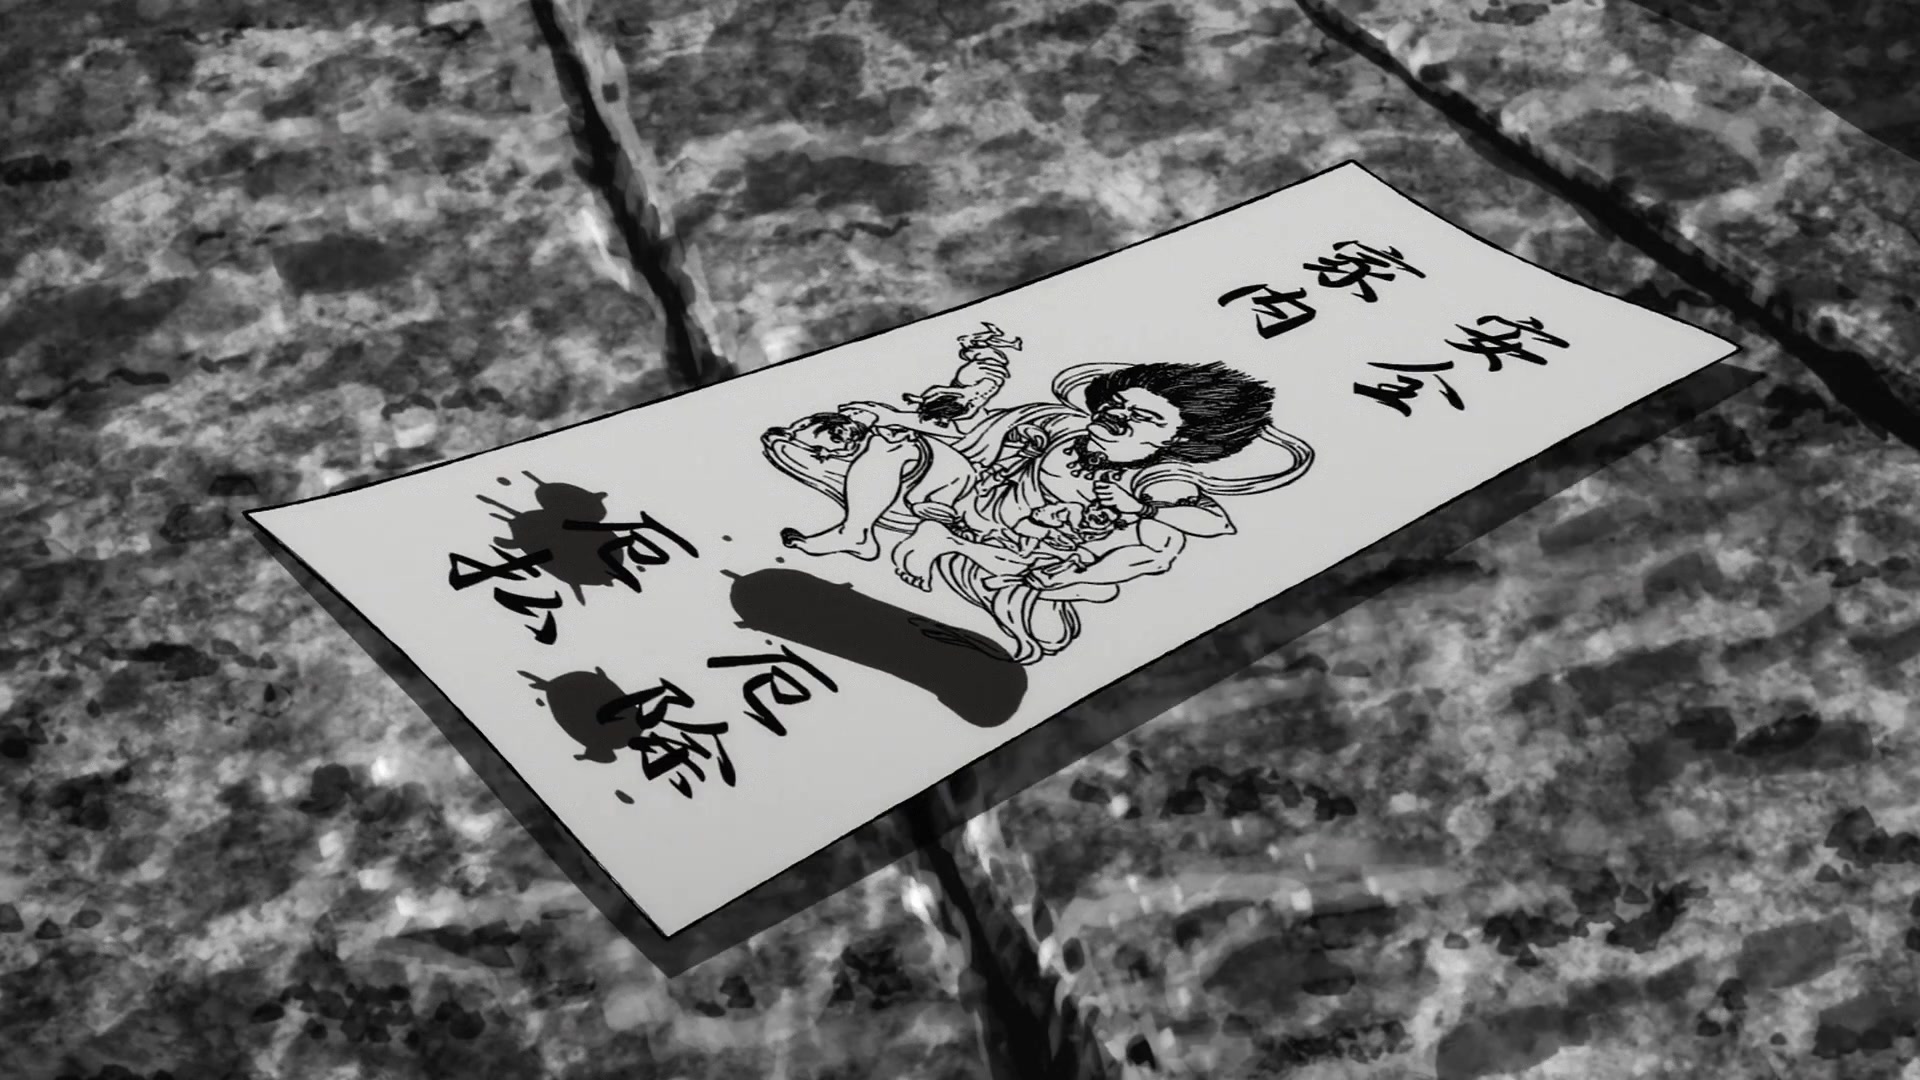 家内
安全
厄払
厄除